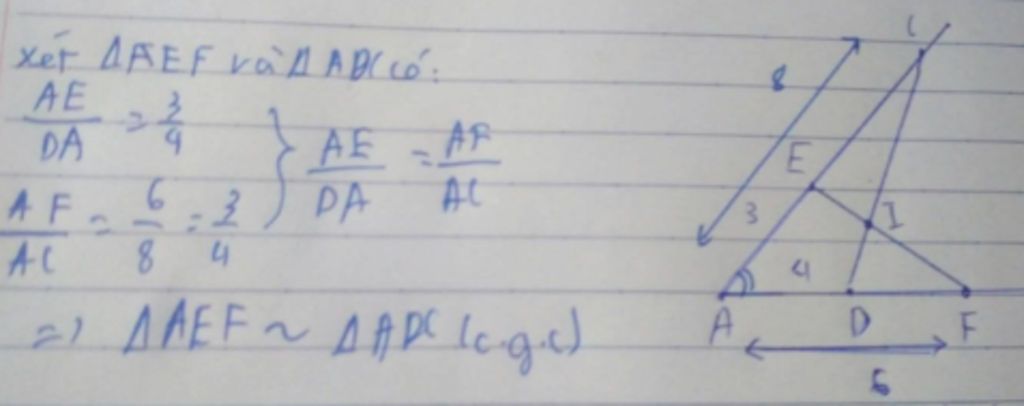 xét ΔAEF và ΔADC có:
AE/DA = 3/4
AF/AC = 6/8 = 3/4
} AE/DA = AF/AC
=> ΔAEF ~ ΔADC (c.g.c)
C
8
E
3
I
4
A
D
F
6